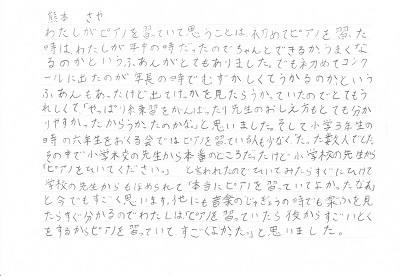 熊本 さや
わたしがピアノを習っていて思うことは初めてピアノを習った
時は、わたしが年中の時だったのでちゃんとできるか、うまくなる
のかというふあんがとてもありました。でも初めてコンク
ールに出たのが年長の時でむずかしくてうかるのかという
ふあんもあったけど出てけっかを見たらうかっていたのでとてもう
れしくて「やっぱり練習をがんばったり先生のおしえ方もとても分か
りやすかったからうかったのかな。」と思いました。そして小学3年生の
時の六年生をおくる会ではピアノを習っている人も少なくたった数人でした。
その中で小学本交の先生から本番のところだったけど小学校の先生から
「ピアノをひいてください。」と言われたのでひいてみたらすぐにひけて
学校の先生からもほめられて「本当にピアノを習っていてよかったなあ」
と今でもすごく思います。他にも音楽のじゅぎょうの時でも楽ふを見
たらすぐ分かるのでわたしは「ピアノを習っていたら後からすごいとく
をするからピアノを習っていてすごくよかった。」と思いました。